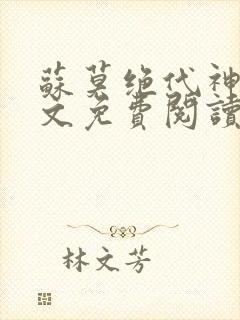 蘇莫绝代神
文免費閱讀
林文芳